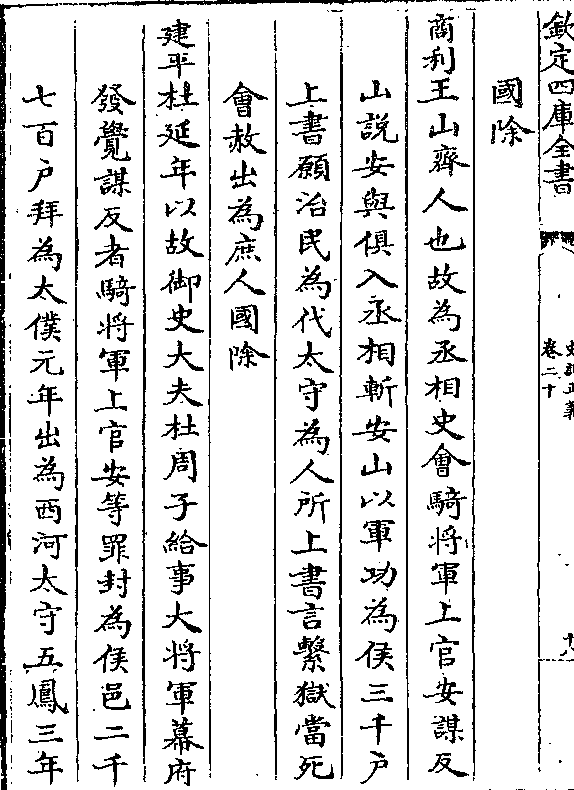 欽定四庫全書
史記正義
卷二十
國除
商利王山齊人也故為丞相史會騎將軍上官安謀反
山説安與俱入丞相斬安山以軍功為侯三千户
上書願治民為代太守為人所上書言繫獄當死
會赦出為庶人國除
建平杜延年以故御史大夫杜周子給事大將軍幕府
發覺謀反者騎將軍上官安等罪封為侯邑二千
七百户拜為太僕元年出為西河太守五鳳三年